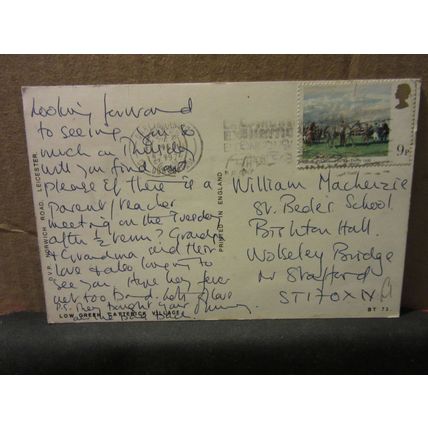 Looking forward
to seeing you so
much on Thursday
will you find out
please if there is a
parent/teacher
meeting on the Tuesday
after ½ term? Grandpa
& Grandma send their
love & also longing to
see you. Hope hay fever
not too bad. Lots of love
P.S. They bought your Mummy
LOW GREEN CATTERICK VILLAGE
D.V.P. NORWICH ROAD, LEICESTER
PRINTED IN ENGLAND
9P
William Mackenzie
St. Bede's School
Bishton Hall.
Wolseley Bridge
Nr Stafford
ST17 0XN
BT 73